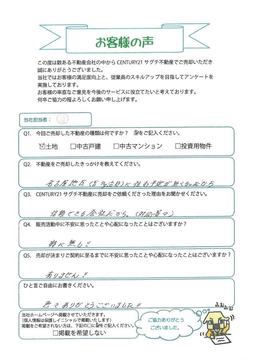 お客様の声
この度は数ある不動産会社の中からCENTURY21 サグチ不動産でご売却いただき
誠にありがとうございました。
当社ではお客様の満足度向上と、従業員のスキルアップを目指してアンケートを
実施しております。
お客様の率直なご意見を今後のサービスに役立てたいと考えております。
何卒ご協力の程よろしくお願い申し上げます。
当社担当者:
Q1. 今回ご売却した不動産の種類は何ですか? ✓をご記入ください。
☑土地 □中古戸建 □中古マンション □投資用物件
Q2. 不動産をご売却したきっかけを教えてください。
Q3. CENTURY21 サグチ不動産をご信頼くださった理由をお聞かせください。
信頼できる会社だから。
Q4. 販売活動中に不安に思ったことや心配になったことはございますか?
特に無し
Q5. 売却が決まり契約に至るまでに不安に思ったことや心配になったことはございますか?
ありません
ひと言ご自由にお書きください。
ありがとうございました
当社ホームページへ掲載させていただきます。
(個人情報は保護しイニシャルで掲載いたします)
掲載をご希望されない方は、下記の□に✓をご記入ください。
□掲載を希望しない
ご協力ありがとう
ございました。